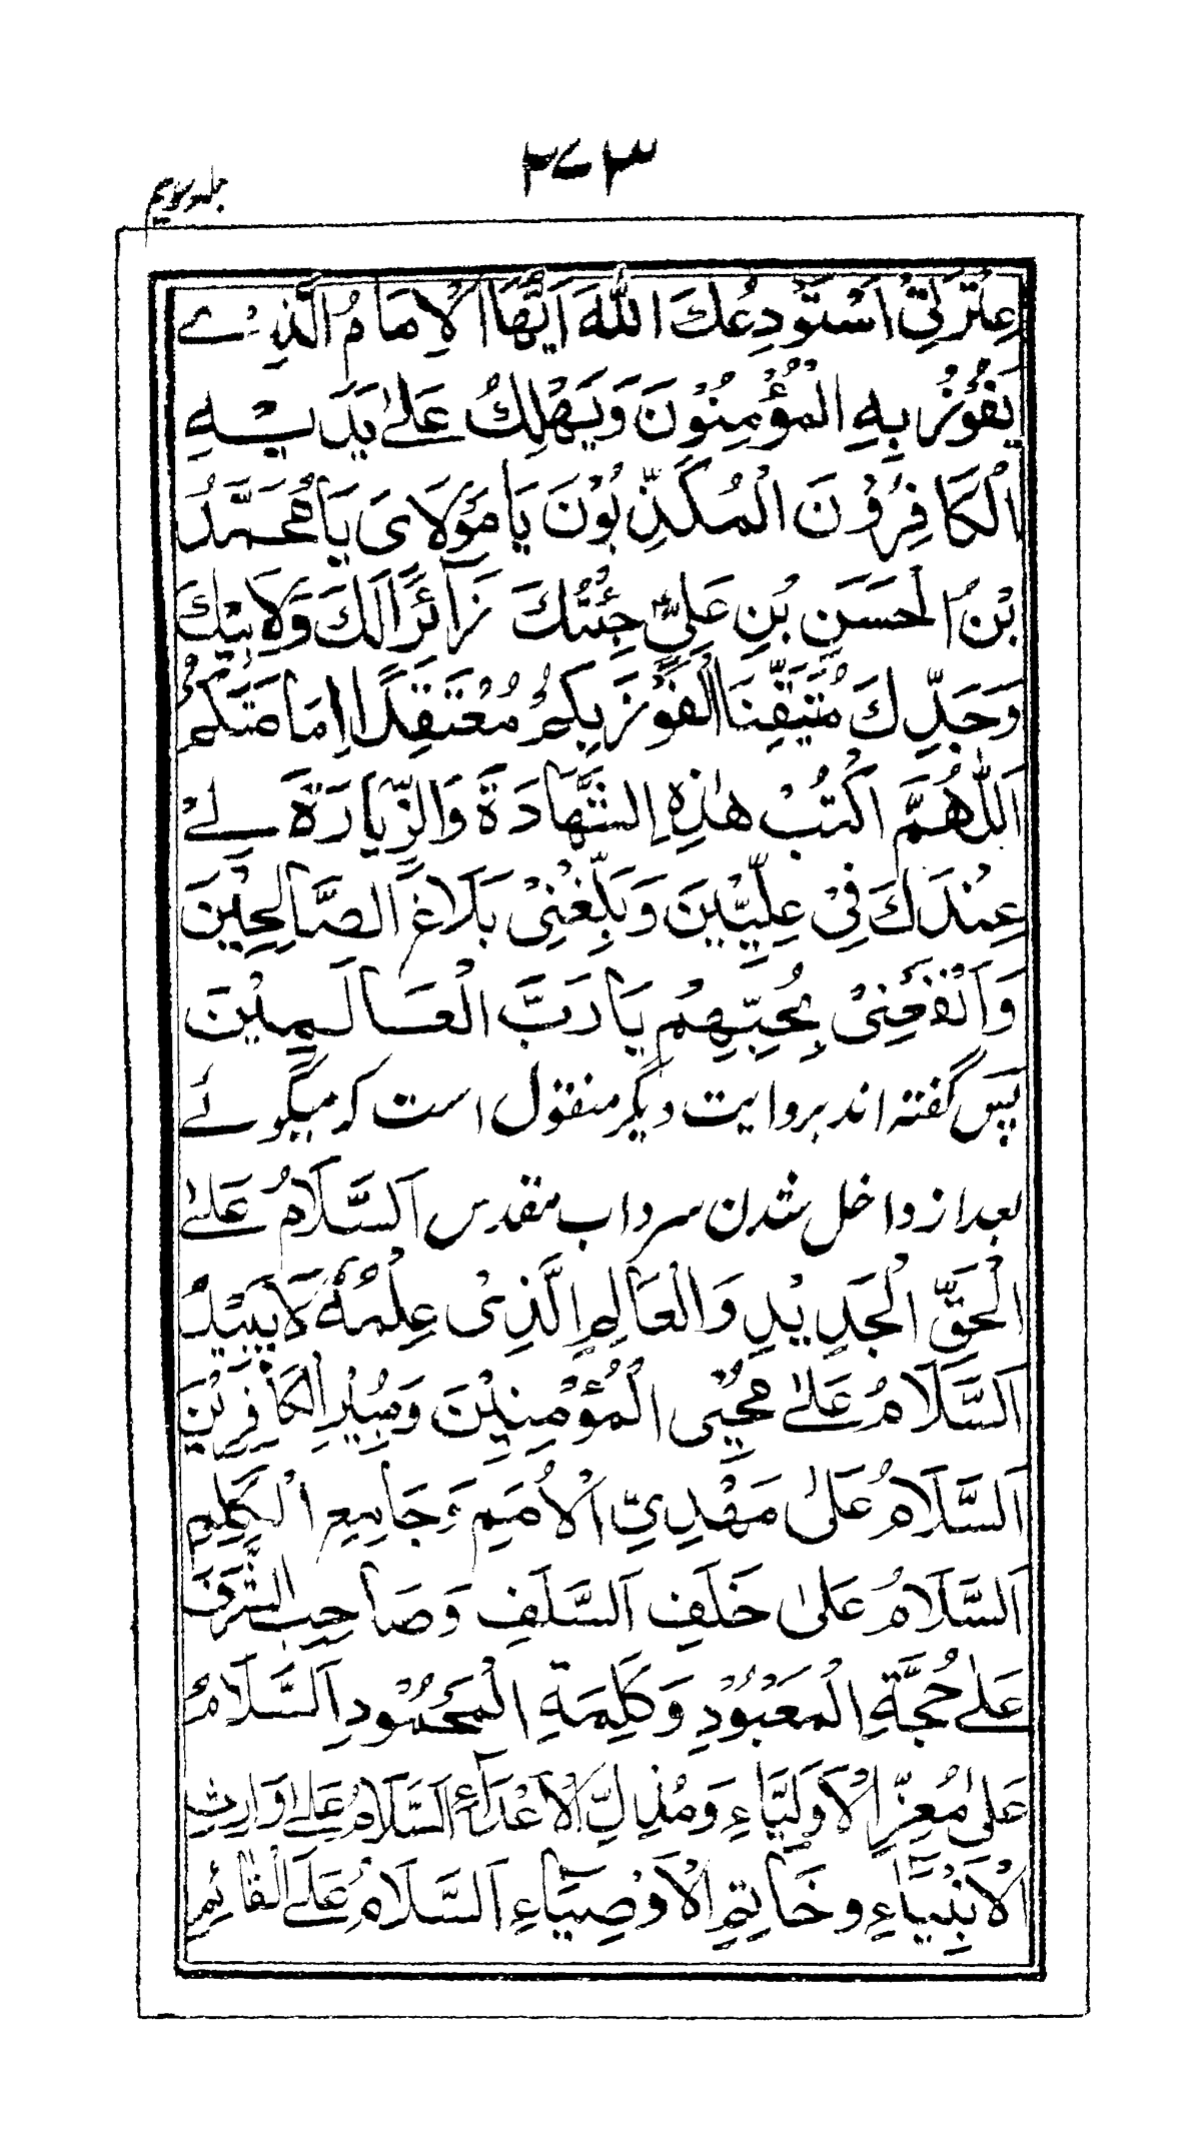 ۲۷۳
جلد سویم
عِتْرَتِیْ اَسْتَوْدِعُكَ اللّٰهَ اَیُّهَا الْاِمَامُ الَّذِیْ
یَفُوْزُ بِهِ الْمُؤْمِنُوْنَ وَیَهْلِكُ عَلٰی یَدَیْهِ
الْكَافِرُوْنَ الْمُكَذِّبُوْنَ یَا مَوْلَایَ یَا مُحَمَّدُ
بْنُ الْحَسَنِ بْنِ عَلِیٍّ جِئْتُكَ زَآئِرًا لَكَ وَلِاَبِیْكَ
وَجَدِّكَ مُتَیَقِّنَا الْفَوْزَ بِكُمْ مُعْتَقِدًا اِمَامَتَكُمْ
اَللّٰهُمَّ اكْتُبْ هٰذِهِ الشَّهَادَةَ وَالزِّیَارَةَ لِیْ
عِنْدَكَ فِیْ عِلِّیِّیْنَ وَبَلِّغْنِیْ بَلَاغَ الصَّالِحِیْنَ
وَانْفَعْنِیْ بِحُبِّهِمْ یَا رَبَّ الْعَالَمِیْنَ
پس گفته اند بروایت دیگر منقول است که میگوئے
بعد از داخل شدن سرداب مقدس اَلسَّلَامُ عَلَی
الْحَقِّ الْجَدِیْدِ وَالْعَالِمِ الَّذِیْ عِلْمُهٗ لَا یَبِیْدُ
اَلسَّلَامُ عَلٰی مُحْیِی الْمُؤْمِنِیْنَ وَمُبِیْرِ الْكَافِرِیْنَ
اَلسَّلَامُ عَلٰی مَهْدِیِّ الْاُمَمِ وَجَامِعِ الْكَلِمِ
اَلسَّلَامُ عَلٰی خَلَفِ السَّلَفِ وَصَاحِبِ الشَّرَفِ
عَلٰی حُجَّةِ الْمَعْبُوْدِ وَكَلِمَةِ الْمَحْمُوْدِ اَلسَّلَامُ
عَلٰی مُعِزِّ الْاَوْلِیَاءِ وَمُذِلِّ الْاَعْدَآءِ اَلسَّلَامُ عَلٰی وَارِثِ
الْاَنْبِیَآءِ وَخَاتِمِ الْاَوْصِیَآءِ اَلسَّلَامُ عَلَی الْقَائِمِ